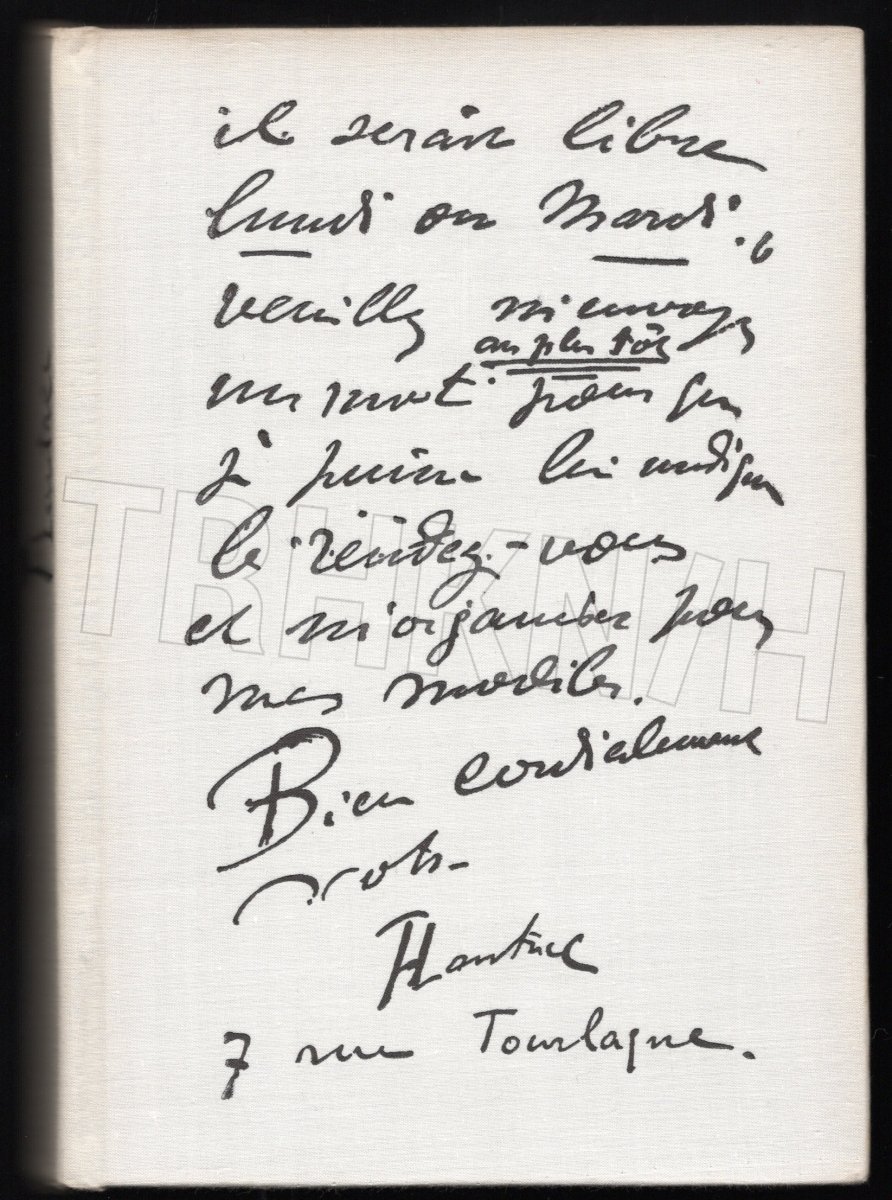 il serait libre
lundi ou Mardi.
veuillez m'envoyer
au plus tôt
un mot pour que
je puisse lui indiquer
le rendez-vous
et m'organiser pour
mes modèles.
Bien cordialement
votre
HLautrec
7 rue Tourlaque.
TRHKNIH